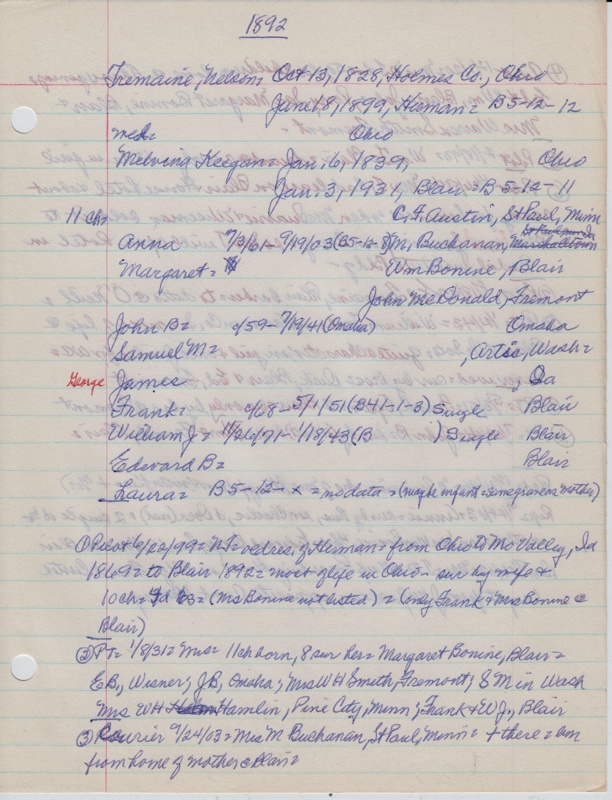 1892
Tremaine, Nelson, Oct 13, 1828, Holmes Co., Ohio
Jan 18, 1899, Herman = B 5-12-12
med = Ohio
Melvina Keegan Jan. 6, 1839, Ohio
Jan. 3, 1931, Blair - B 5-12-11
11 ch = C. F. Austin, St Paul, Minn
Anna 7/3/61 - 9/19/03 (B5-12-8) M, Buchanan, Marshalltown
Margaret = Wm Bonine, Blair
John McDonald, Fremont
John B = c/59 - 7/19/41 (Omaha) Omaha
Samuel M = , Wash =
George James , Ia
Frank = c/68 - 5/1/51 (B41-1-3) Single Blair
William J = 11/26/71 - 1/18/43 (B ) Single Blair
Edward B = Blair
Laura = B 5-12-x = no data = (maybe infant = same grave as mother)
① Pilot 6/22/99 = NT = res. of Herman = from Ohio to Mo Valley, Ia
1869 = to Blair 1892 = most of life in Ohio - sur by wife &
10 ch = (Mrs Bonine not listed) = (only Frank & Mrs Bonine @
Blair)
② PT = 1/8/31 = Mrs = 11 ch born, 8 sur her = Margaret Bonine, Blair =
E B, Wisner; J B, Omaha; Mrs W H Smith, Fremont; S M in Wash
Mrs W H Hamlin, Pine City, Minn; Frank & W J., Blair
③ Courier 9/24/03 = Mrs M Buchanan, St Paul, Minn = + there = bur
from home of mother @ Blair =